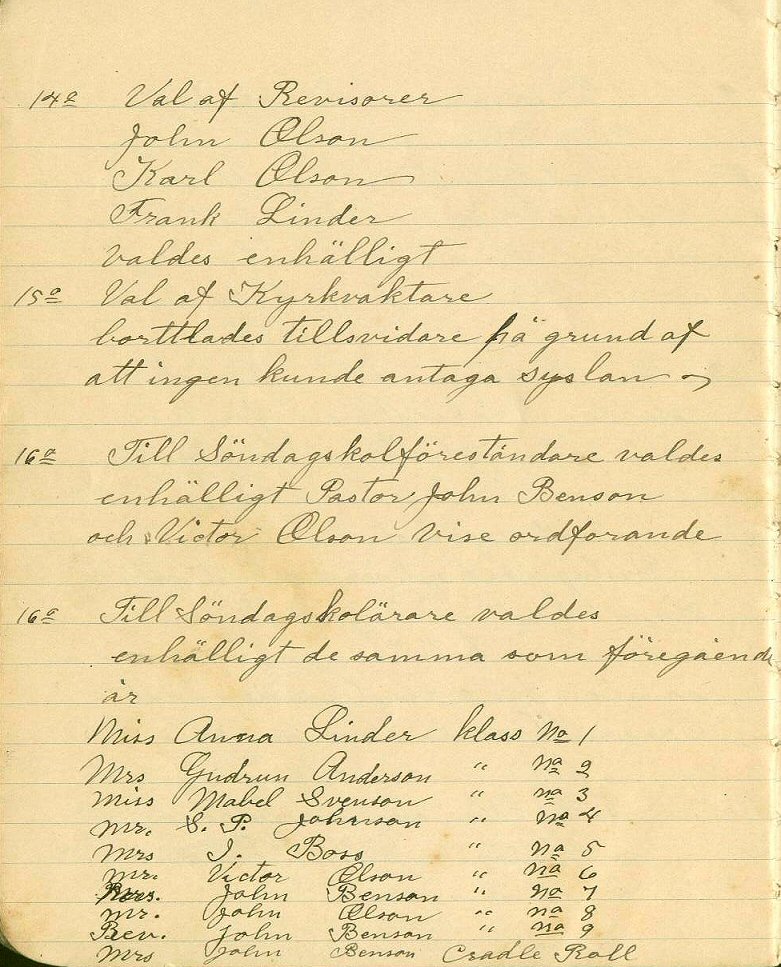 14a Val af Revisorer
John Olson
Karl Olson
Frank Linder
valdes enhälligt
15a Val af Kyrkvaktare
borttlades tillsvidare på grund af
att ingen kunde antaga syslan
16a Till Söndagskolföreståndare valdes
enhälligt Pastor John Benson
och Victor Olson vise ordforande
16a Till Söndagskolärare valdes
enhälligt de samma som föregående
år
Miss Anna Linder klass No 1
Mrs Gudrun Anderson " No 2
Miss Mabel Svenson " No 3
Mr. S. P. Johnson " No 4
Mrs J. Boss " No 5
Mr. Victor Olson " No 6
Mrs. John Benson " No 7
Mr. John Olson " No 8
Rev. John Benson " No 9
Mrs John Benson Cradle Roll